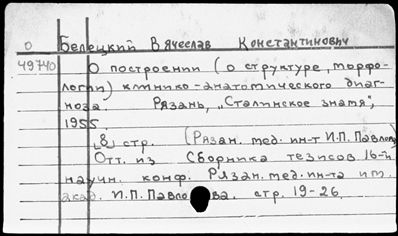 О Белецкий Вячеслав Константинович
49740 О построении (о структуре, морфо-
логии) клинико-анатомического диаг-
ноза Рязань, „Сталинское знамя",
1955
8 стр. (Рязан. мед. ин-т И.П. Павлова)
Отт. из Сборника тезисов 16-й
научн. конф. Рязан. мед. ин-та им.
акад. И.П. Павлова. стр. 19-26.